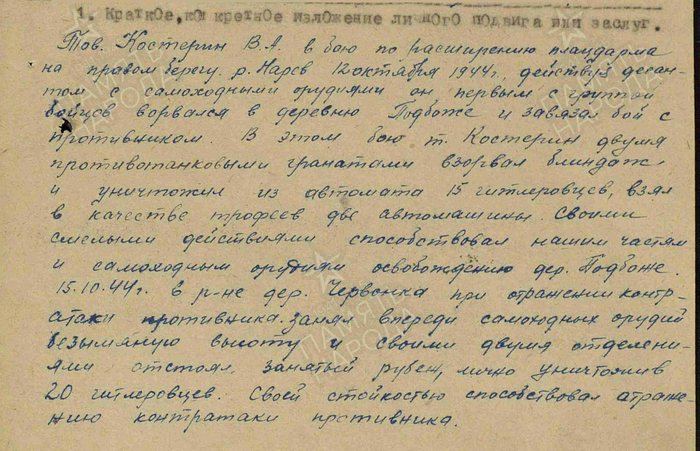 1. Краткое, конкретное изложение личного подвига или заслуг.
Тов. Костерин В.А. в бою по расширению плацдарма
на правом берегу р. Нарев 12 октября 1944г., действуя десан-
том с самоходными орудиями он первым с группой
бойцов ворвался в деревню Подбоже и завязал бой с
противником. В этом бою т. Костерин двумя
противотанковыми гранатами взорвал блиндаж
и уничтожил из автомата 15 гитлеровцев, взял
в качестве трофеев две автомашины. Своими
смелыми действиями способствовал нашим частям
и самоходным орудиям освобождению дер. Подбоже.
15.10.44г. в р-не дер. Червонка при отражении контр-
атаки противника. Занял впереди самоходных орудий
безымяную высоту и своими двумя отделени-
ями отстоял занятый рубеж, лично уничтожив
20 гитлеровцев. Своей стойкостью способствовал отраже-
нию контратаки противника.
ПАМЯТЬ
НАРОДА